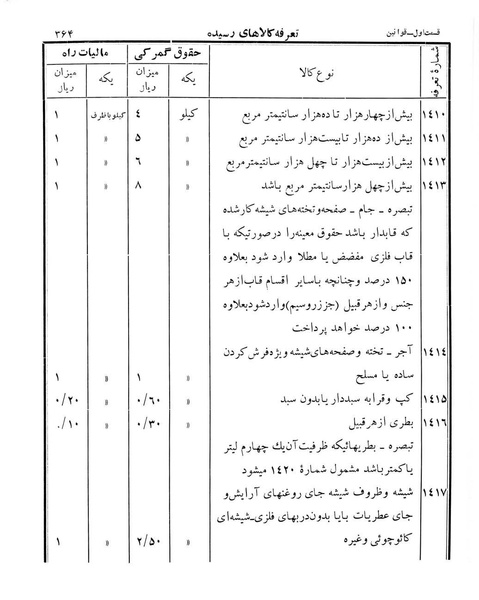 قسمت اول ـ قوانین تعرفه کالاهای رسیده ۳۶۴
شمارهٔ تعرفه نوع کالا حقوق گمرکی مالیات راه
یکه میزان ریال یکه میزان ریال
۱۴۱۰ بیش از چهار هزار تا ده هزار سانتیمتر مربع کیلو ۴ کیلو با ظرف ۱
۱۴۱۱ بیش از ده هزار تا بیست هزار سانتیمتر مربع » ۵ » ۱
۱۴۱۲ بیش از بیست هزار تا چهل هزار سانتیمتر مربع » ۶ » ۱
۱۴۱۳ بیش از چهل هزار سانتیمتر مربع باشد » ۸ » ۱
تبصره ـ جام ـ صفحه و تخته‌های شیشه کار شده
که قابدار باشد حقوق معینه را در صورتیکه با
قاب فلزی مفضض یا مطلا وارد شود بعلاوه
۱۵۰ درصد و چنانچه با سایر اقسام قاب از هر
جنس و از هر قبیل (جز زر و سیم) وارد شود بعلاوه
۱۰۰ درصد خواهد پرداخت
۱۴۱۴ آجر ـ تخته و صفحه‌های شیشه ویژه فرش کردن
ساده یا مسلح » ۱ » ۱
۱۴۱۵ کپ و قرابه سبددار یا بدون سبد » ۰/۶۰ » ۰/۲۰
۱۴۱۶ بطری از هر قبیل » ۰/۳۰ » ۰/۱۰
تبصره ـ بطریهائیکه ظرفیت آن یك چهارم لیتر
یا کمتر باشد مشمول شمارهٔ ۱۴۲۰ میشود
۱۴۱۷ شیشه و ظروف شیشه جای روغنهای آرایش و
جای عطریات با یا بدون دربهای فلزی ـ شیشه‌ای
کائوچوئی و غیره » ۲/۵۰ » ۱